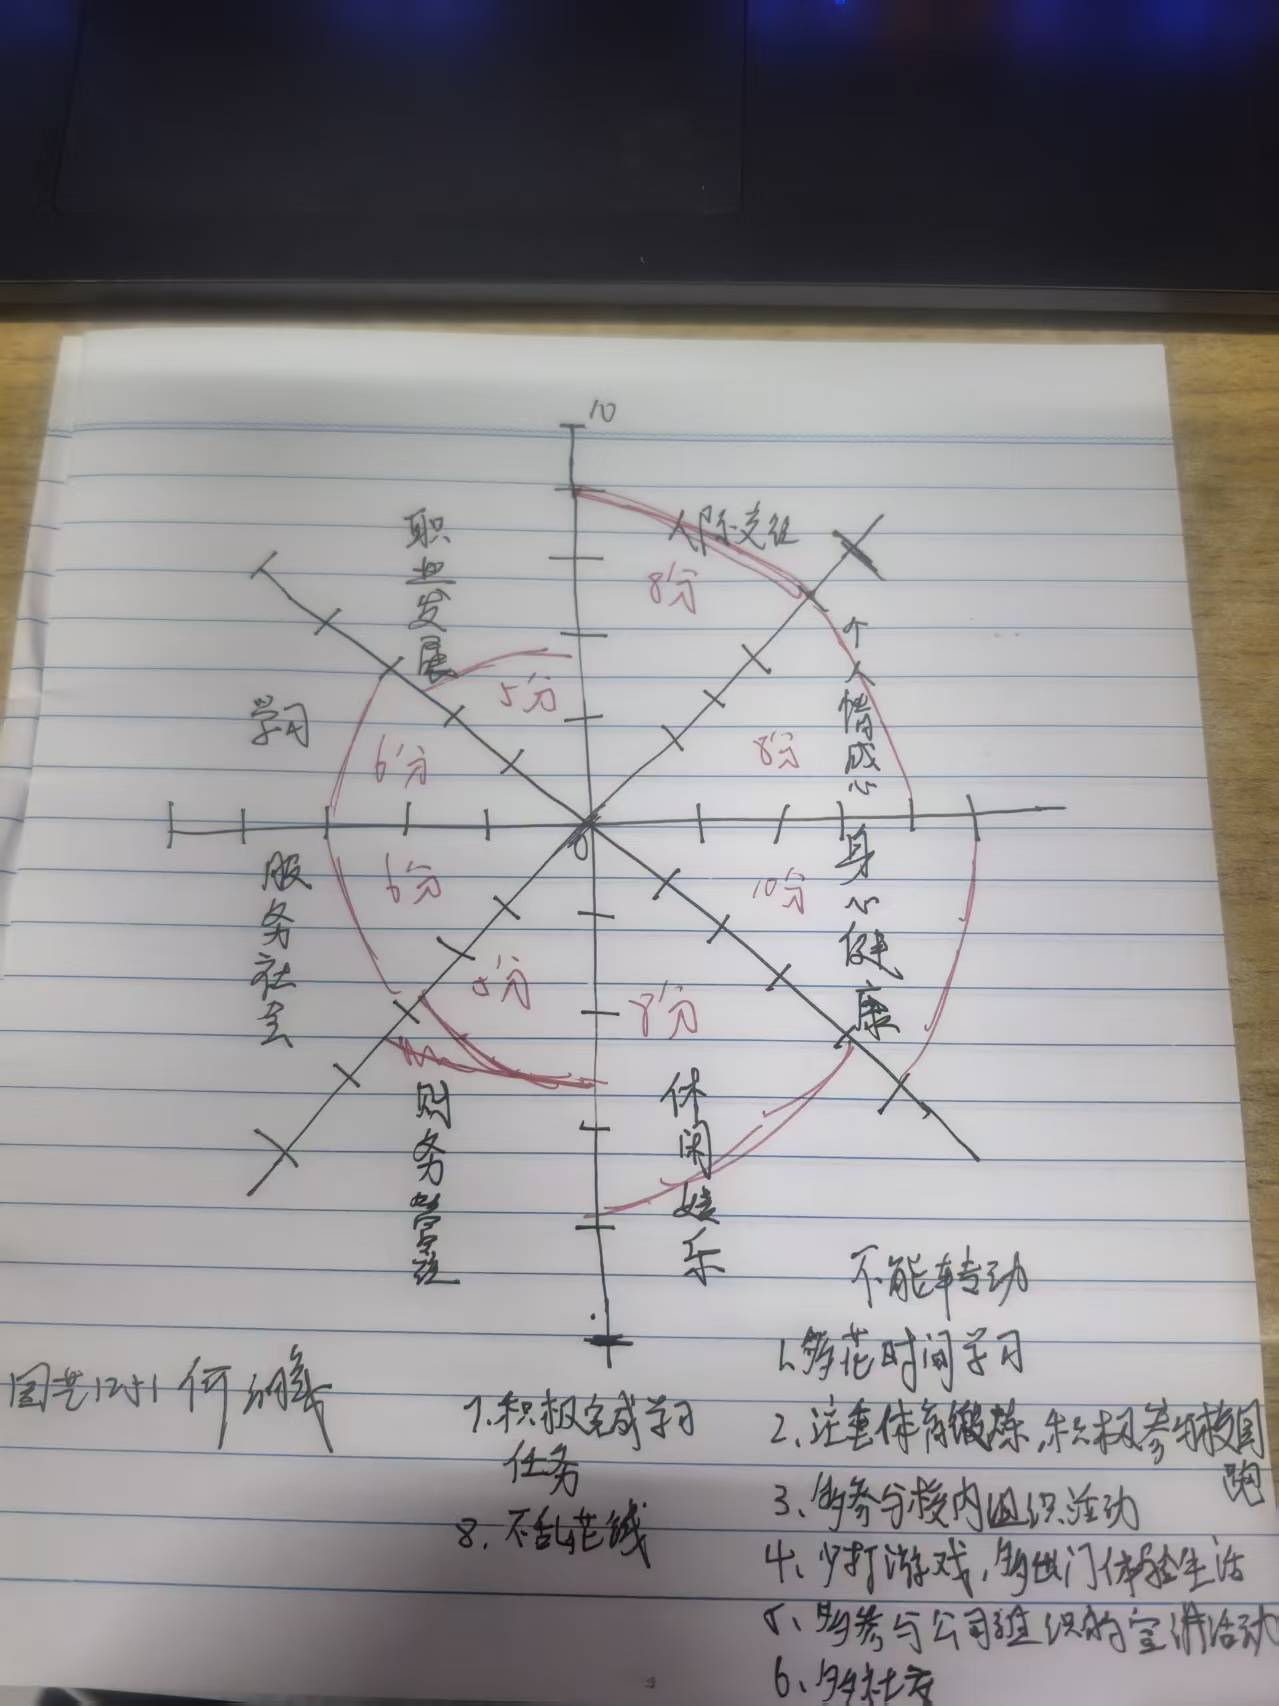 10
人际交往
8分
职业发展
5分
个人情感
8分
学习
6分
0
服务社会
6分
身心健康
10分
财务管理
5分
休闲娱乐
8分
不能转动
1、多花时间学习
2、注重体育锻炼，积极参与校园跑
3、多参与校内组织活动
4、少打游戏，多出门体验生活
5、多参与公司组织的宣讲活动
6、多社交
7、积极完成学习
任务
8、不乱花钱